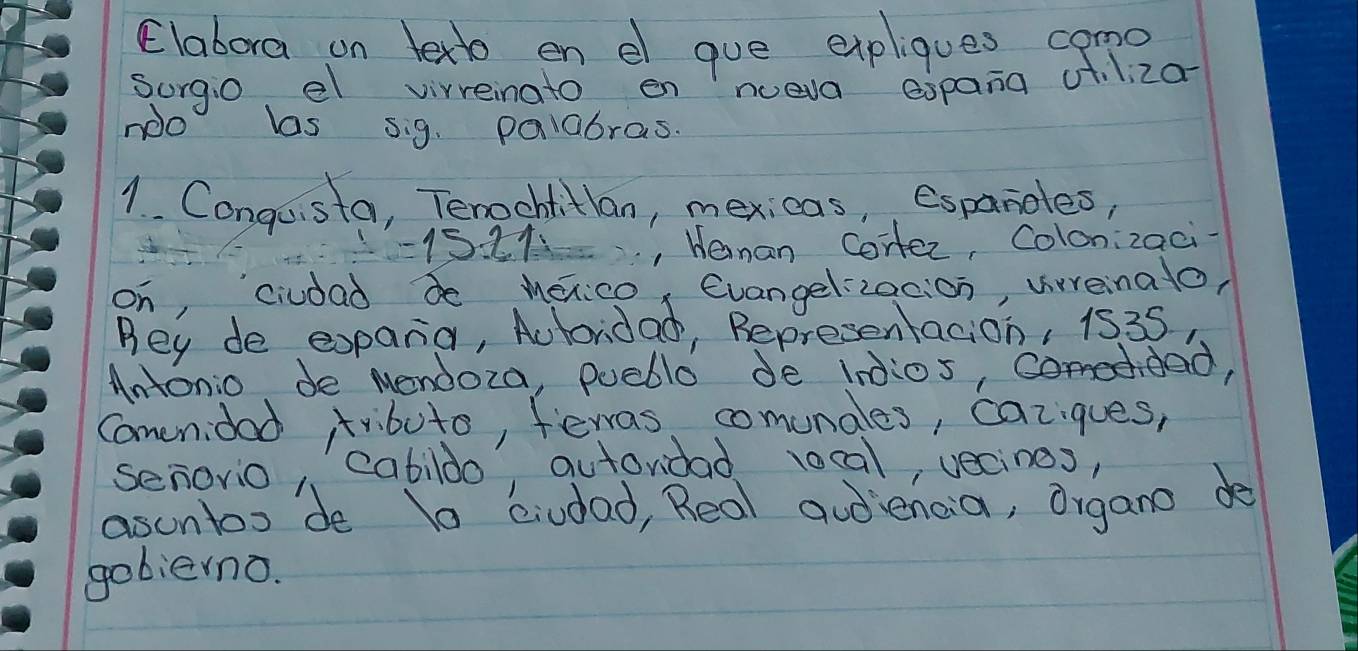 Elabora un texto en el que expliques como
surgio el virreinato en nueva españa utiliza-
ndo las sig. palabras.
1.. Conquista, Tenochtitlan, mexicas, Españoles,
1521, Hernan Cortez, Colonizaci-
on, ciudad de México, Evangelización, virreinato,
Rey de españa, Autoridad, Representación, 1535,
Antonio de Mendoza, pueblo de indios, comodidad,
Comunidad, tributo, tierras comunales, caziques,
señorio, cabildo, autoridad local, vecinos,
asuntos de la ciudad, Real audiencia, Organo de
gobierno.